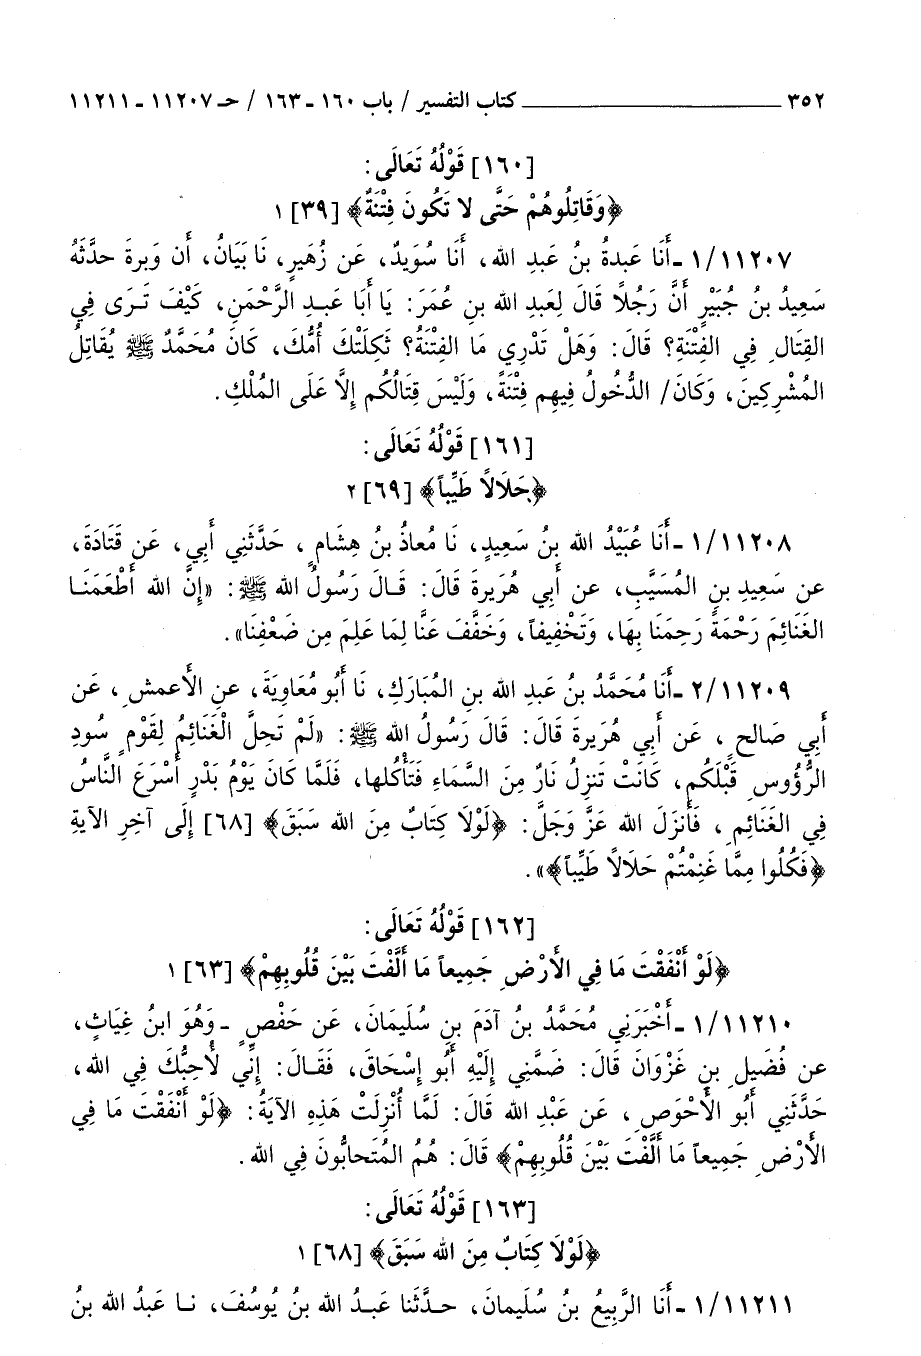 ٣٥٢ ـــــــــــــــــــــــــــــــــ كتاب التفسير / باب ١٦٠ ـ ١٦٣ / حـ ١١٢٠٧ ـ ١١٢١١
[١٦٠] قَوْلُهُ تَعَالَى:
﴿وَقَاتِلُوهُمْ حَتَّى لا تَكُونَ فِتْنَةٌ﴾ [٣٩] ١
١/١١٢٠٧ ـ أَنَا عَبدةُ بنُ عَبدِ الله، أَنَا سُوَيدٌ، عَن زُهَيرٍ، نَا بَيَانُ، أَن وَبرةَ حدثَهُ
سَعِيدُ بنُ جُبَيْرٍ أَنَّ رَجُلاً قَالَ لِعَبدِ الله بنِ عُمَرَ: يَا أَبَا عَبدِ الرَّحْمَنِ، كَيْفَ تَرَى فِي
القِتَالِ فِي الفِتْنَةِ؟ قَالَ: وَهَلْ تَدْرِي مَا الفِتْنَةُ؟ ثَكِلَتْكَ أُمُّكَ، كَانَ مُحَمَّدٌ ﷺ يُقَاتِلُ
المُشْرِكِينَ، وَكَانَ/ الدُّخُولُ فِيهِم فِتْنَةً، وَلَيْسَ قِتَالُكُم إِلاَّ عَلَى المُلْكِ.
[١٦١] قَوْلُهُ تَعَالَى:
﴿حَلَالاً طَيِّباً﴾ [٦٩] ٢
١/١١٢٠٨ ـ أَنَا عُبَيْدُ الله بنُ سَعِيدٍ، نَا مُعاذُ بنُ هِشَامٍ، حَدَّثَنِي أَبِي، عَن قَتَادَةَ،
عن سَعِيدِ بنِ المُسَيَّبِ، عن أَبِي هُرَيرةَ قَالَ: قَالَ رَسُولُ الله ﷺ: «إِنَّ الله أَطْعَمَنَا
الغَنَائِمَ رَحْمَةً رَحِمَنَا بِهَا، وَتَخْفِيفاً، وَخَفَّفَ عَنَّا لِمَا عَلِمَ مِن ضَعْفِنَا».
٢/١١٢٠٩ ـ أَنَا مُحَمَّدُ بنُ عَبدِ الله بنِ المُبَارَكِ، نَا أَبُو مُعَاوِيَةَ، عنِ الأَعمشِ، عَن
أَبِي صَالحٍ، عَن أَبِي هُرَيرةَ قَالَ: قَالَ رَسُولُ الله ﷺ: «لَمْ تَحِلَّ الْغَنَائِمُ لِقَوْمٍ سُودِ
الرُّؤُوسِ قَبْلَكُم، كَانَتْ تَنزِلُ نَارٌ مِنَ السَّمَاءِ فَتَأْكُلها، فَلَمَّا كَانَ يَوْمُ بَدْرٍ أَسْرَعَ النَّاسُ
فِي الغَنَائِمِ، فَأَنزَلَ الله عَزَّ وَجَلَّ: ﴿لَوْلَا كِتَابٌ مِنَ الله سَبَقَ﴾ [٦٨] إِلَى آخِرِ الآيَةِ
﴿فَكُلُوا مِمَّا غَنِمْتُمْ حَلَالاً طَيِّباً﴾».
[١٦٢] قَوْلُهُ تَعَالَى:
﴿لَوْ أَنْفَقْتَ مَا فِي الأَرْضِ جَمِيعاً مَا أَلَّفْتَ بَيْنَ قُلُوبِهِمْ﴾ [٦٣] ١
١/١١٢١٠ ـ أَخْبَرَنِي مُحَمَّدُ بنُ آدَمَ بنِ سُلَيمَانَ، عَن حَفْصٍ ـ وَهُوَ ابنُ غِيَاثٍ،
عن فُضَيلِ بنِ غَزْوَانَ قَالَ: ضَمَّنِي إِلَيْهِ أَبُو إِسْحَاقَ، فَقَالَ: إِنِّي لَأُحِبُّكَ فِي الله،
حَدَّثَنِي أَبُو الأَحْوَصِ، عَن عَبْدِ الله قَالَ: لَمَّا أُنْزِلَتْ هَذِهِ الآيَةُ: ﴿لَوْ أَنْفَقْتَ مَا فِي
الأَرْضِ جَمِيعاً مَا أَلَّفْتَ بَيْنَ قُلُوبِهِمْ﴾ قَالَ: هُمُ المُتَحابُّونَ فِي الله.
[١٦٣] قَوْلُهُ تَعَالَى:
﴿لَوْلَا كِتَابٌ مِنَ الله سَبَقَ﴾ [٦٨] ١
١/١١٢١١ ـ أَنَا الرَّبِيعُ بنُ سُلَيمانَ، حدَّثَنا عَبدُ الله بنُ يُوسُفَ، نا عَبدُ الله بنُ